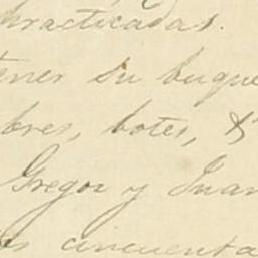 practicadas.
tener su buque
bres, botes, &
Gregor y Juan
es cincuenta